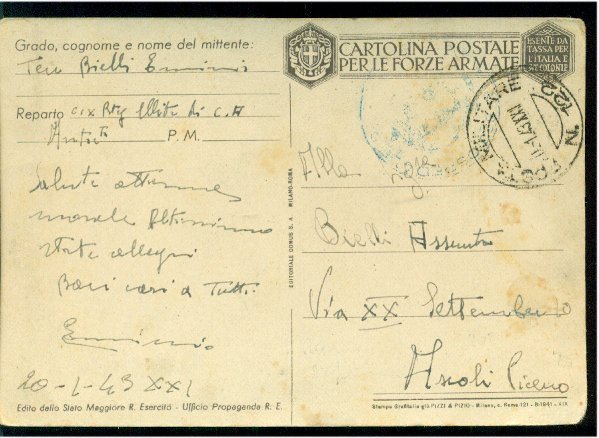 Grado, cognome e nome del mittente:
Ten Bielli Erminio
Reparto CIX Btg Mitr. di C.A
P. M.
Salute ottima
morale Altissimo
state allegri
Baci cari a Tutti
Erminio
20-1-43 XXI
Edito dallo Stato Maggiore R. Esercito - Ufficio Propaganda R. E.
EDITORIALE DOMUS S. A. MILANO-ROMA
CARTOLINA POSTALE
PER LE FORZE ARMATE
ESENTE DA
TASSA PER
L'ITALIA E
COLONIE
POSTA MILITARE N. 122
Alla
Bielli Assunta
Via XX Settembre
Ascoli Piceno
Stampa Grafitalia già PIZZI & PIZIO - Milano, c. Roma 121 - B-1941 - XIX